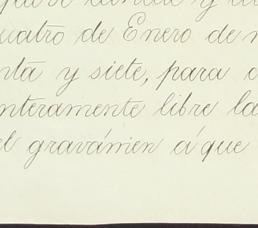 cuatro de Enero de
nta y siete, para
nteramente libre la
el gravámen á que